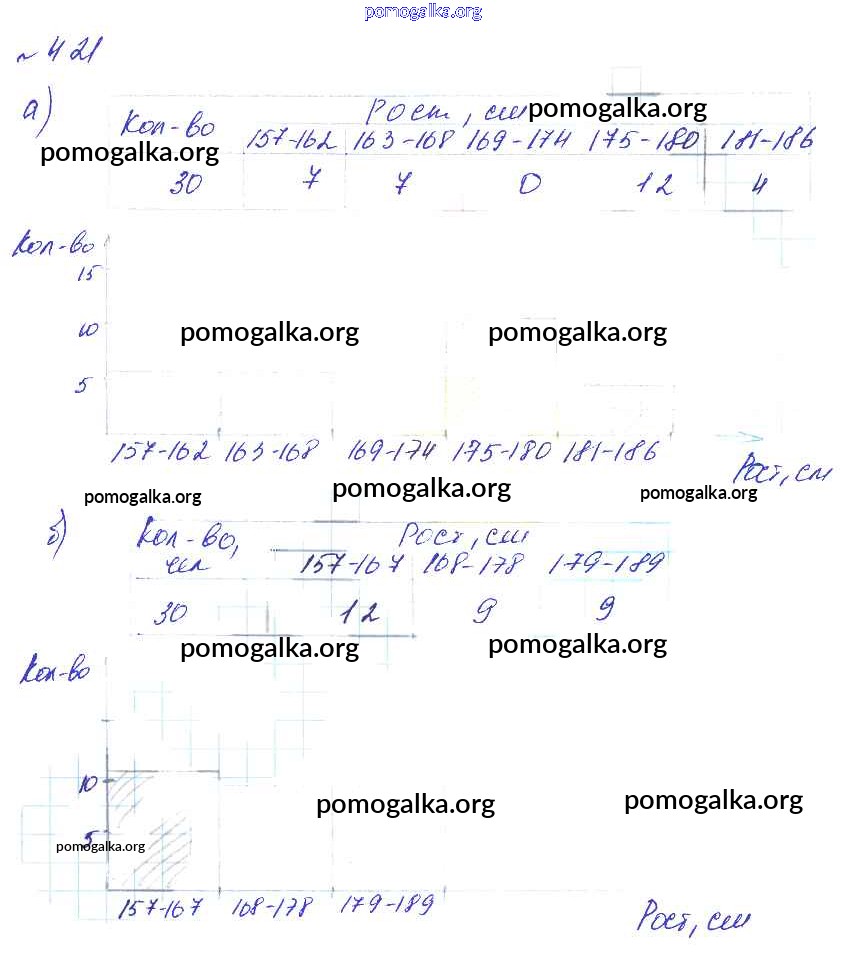 pomogalka.org
~ 421
а)
Рост, см pomogalka.org
Кол-во 157-162 163-168 169-174 175-180 181-186
pomogalka.org
30 7 7 0 12 4
Кол-во
15
10
pomogalka.org pomogalka.org
5
157-162 163-168 169-174 175-180 181-186
Рост, см
pomogalka.org pomogalka.org pomogalka.org
б) Кол-во, Рост, см
чел 157-167 168-178 179-189
30 12 9 9
pomogalka.org pomogalka.org
Кол-во
10
pomogalka.org pomogalka.org
5
pomogalka.org
157-167 168-178 179-189
Рост, см